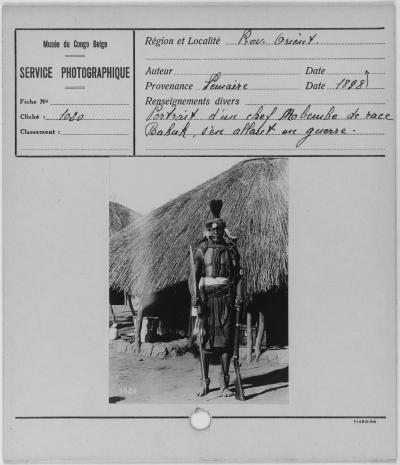 Musée du Congo Belge
SERVICE PHOTOGRAPHIQUE
Fiche No
Cliché : 1020
Classement :
Région et Localité Prov. Orient.
Auteur Date
Provenance Lemaire Date 1898
Renseignements divers
Portrait d'un chef de race
s'en allant en guerre.
1020